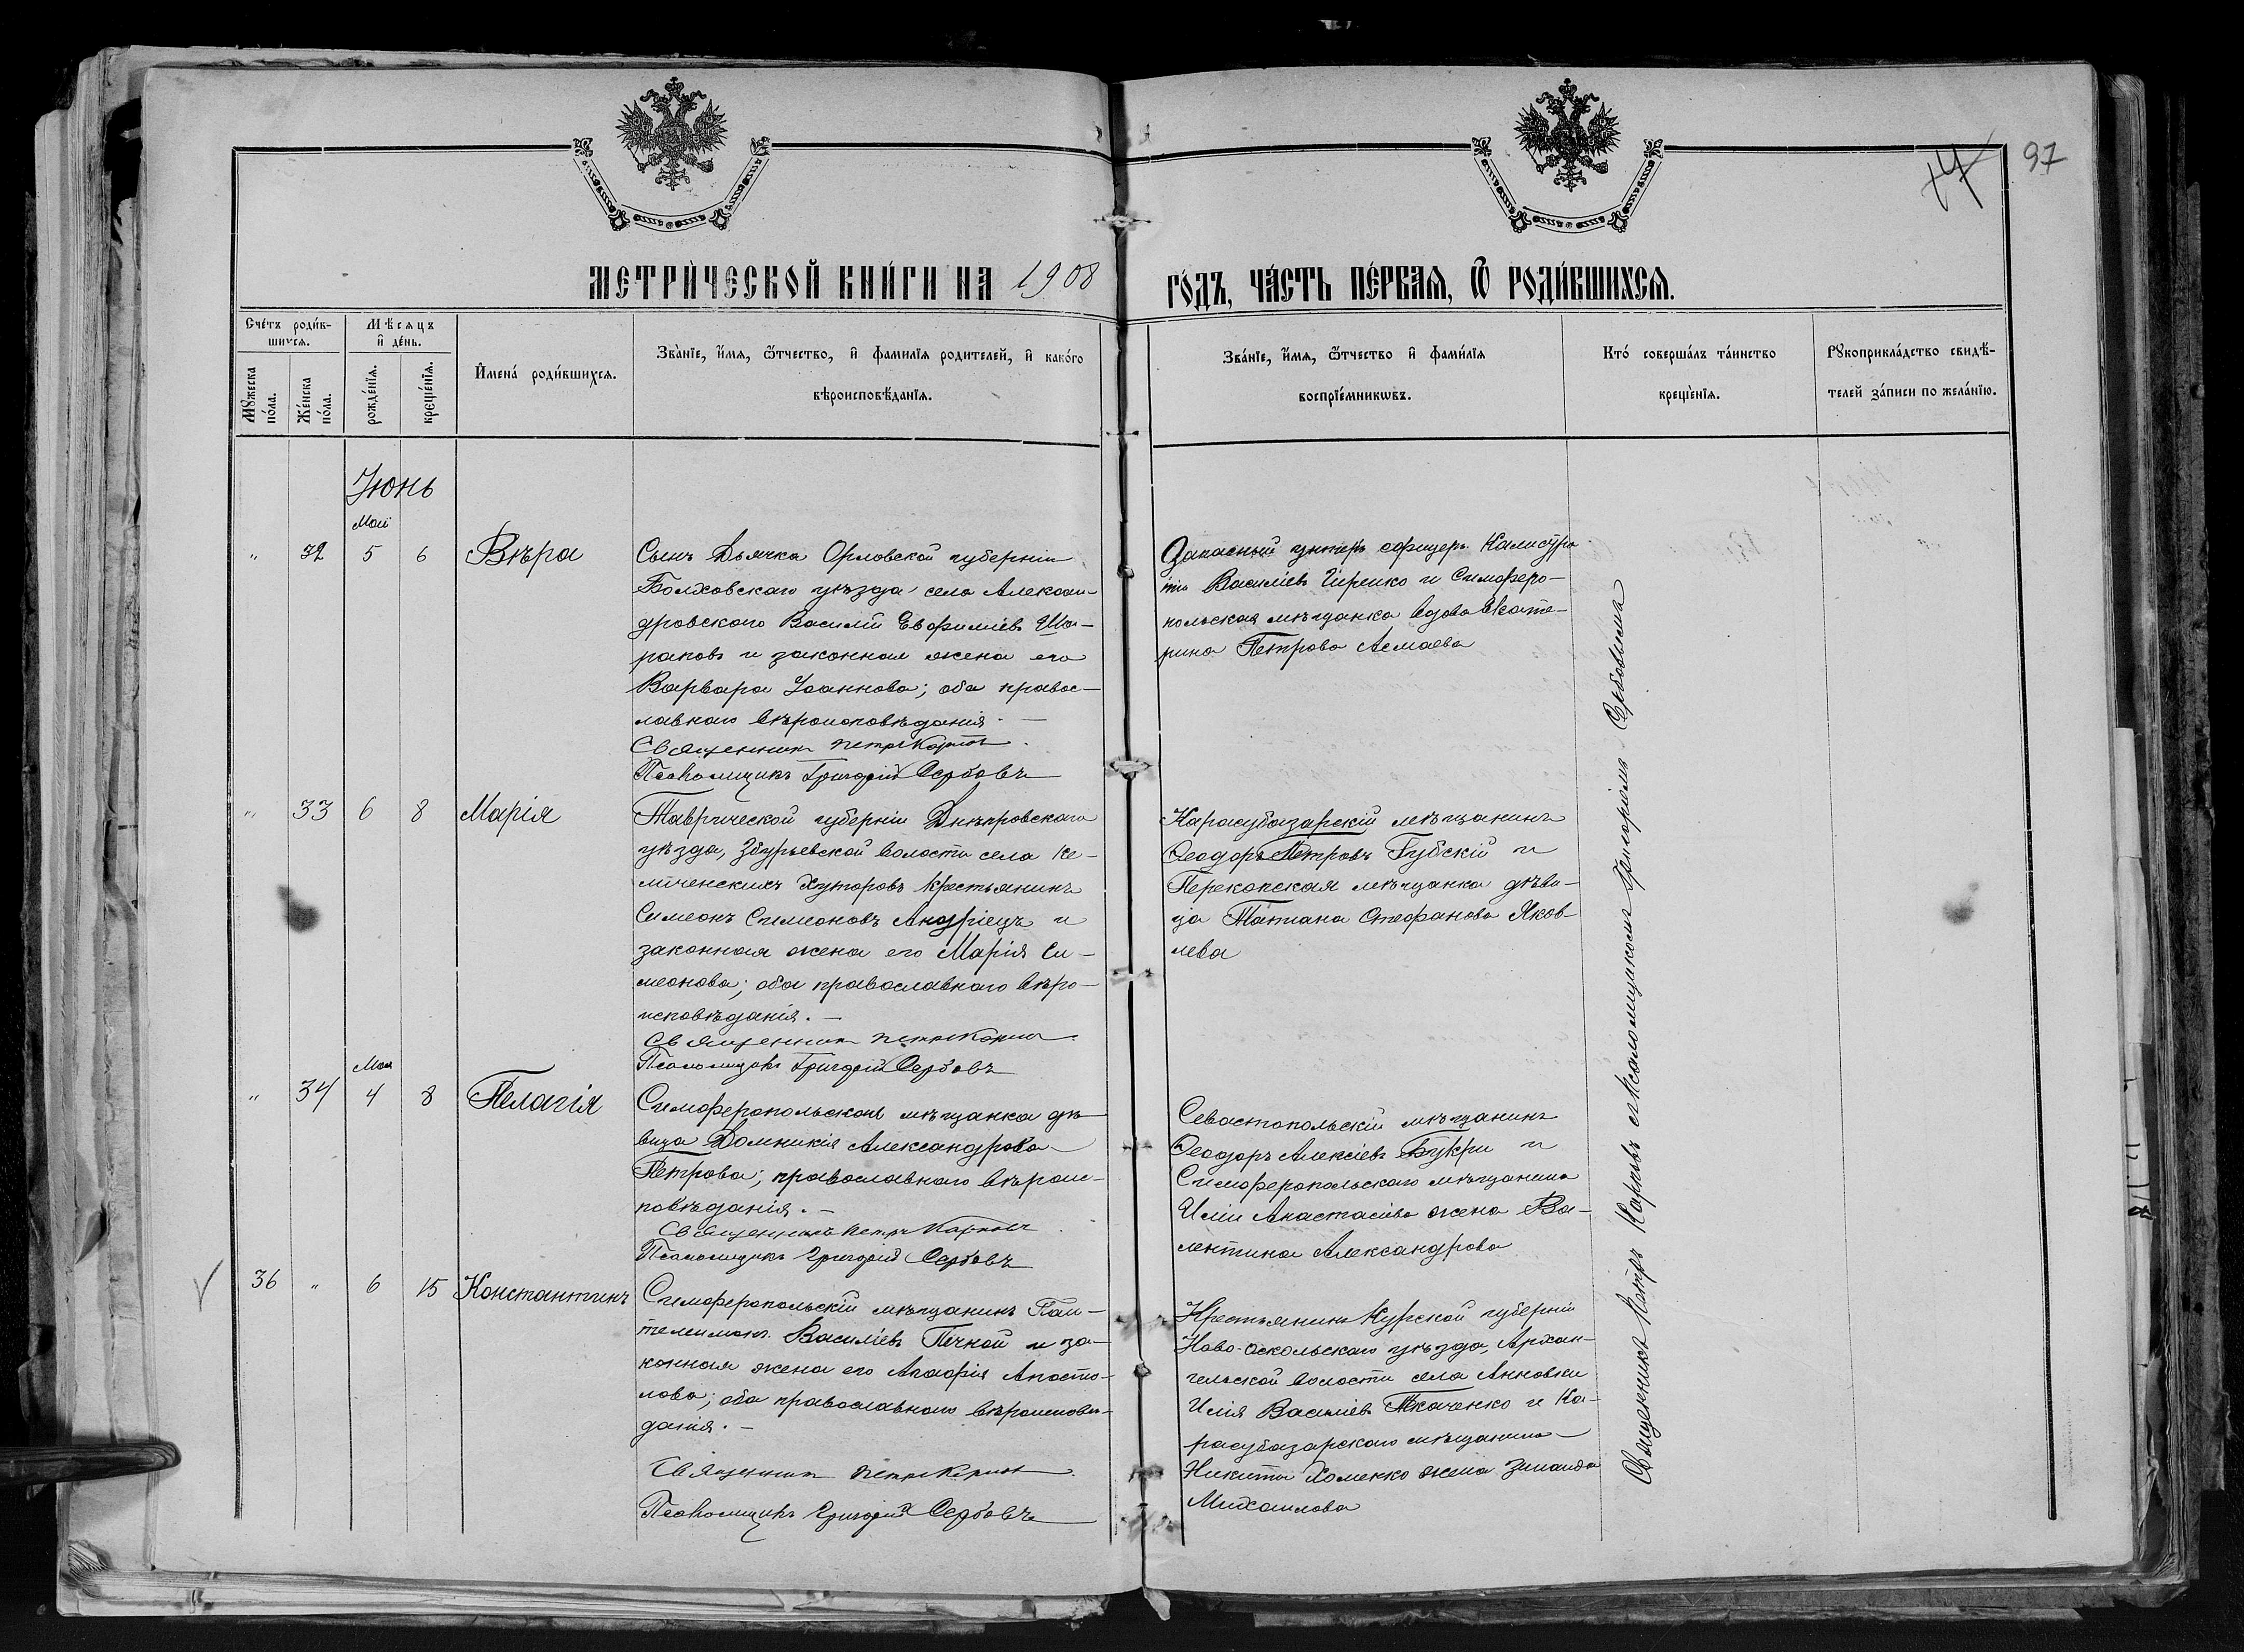 97
МЕТРИ́ЧЕСКОЙ КНИ́ГИ НА 1908 ГО́ДЪ, ЧА́СТЬ ПЕ́РВАѦ, Ѿ РОДИ́ВШИХСѦ.
Сче́тъ роди́в-
шихсѧ.
Мѣсѧцъ
и҆ де́нь.
Мꙋжеска
по́ла.
Же́нска
по́ла.
рожде́нїѧ.
креще́нїѧ.
И҆мена́ роди́вшихсѧ.
Зва́нїе, и҆́мѧ, ѻ҆́тчество, и҆ фами́лїѧ родителей, и҆ како́гѡ
вѣроисповѣ́данїѧ.
Зва́нїе, и҆́мѧ, ѻ҆́тчество и҆ фами́лїѧ
воспрїе́мникѡвъ.
Кто́ соверша́лъ та́инство
креще́нїѧ.
Рꙋкоприкла́дство свидѣ́-
телей за́писи по жела́нїю.
Іюнь
Май
" 32 5 6 Вѣра
Сынъ Дьячка Орловской губерніи
Болховскаго уѣзда села Алексан-
дровскаго Василій Евфиміевъ Ша-
раповъ и законная жена его
Варвара Іоаннова; оба правос-
лавнаго вѣроисповѣданія. —
Священникъ Петръ Карповъ
Псаломщикъ Григорій Сербовъ
Запасный унтеръ офицеръ Калистра
тъ Василіевъ Гиренко и Симферо-
польская мѣщанка вдова Екате-
рина Петрова Асмаева
" 33 6 8 Марія
Таврической губерніи Днѣпровскаго
уѣзда, Збурьевской волости села Ке-
мѣченскихъ Хуторовъ крестьянинъ
Симеонъ Симеоновъ Андріецъ и
законная жена его Марія Си-
меонова; оба православнаго вѣро-
исповѣданія. —
Священникъ Петръ Карповъ
Псаломщикъ Григорій Сербовъ
Карасубазарскій мѣщанинъ
Ѳеодоръ Петровъ Губскій и
Перекопская мѣщанка дѣви-
ца Татіана Стефанова Яков-
лева
Мая
" 34 4 8 Пелагія
Симферопольская мѣщанка дѣ-
вица Домникія Александрова
Петрова; православнаго вѣроис-
повѣданія. —
Священникъ Петръ Карповъ
Псаломщикъ Григорій Сербовъ
Севастопольскій мѣщанинъ
Ѳеодоръ Алексіевъ Букри и
Симферопольскаго мѣщанина
Иліи Анастасіева жена Ва-
лентина Александрова
36 " 6 15 Константинъ
Симферопольскій мѣщанинъ Пан-
телеимонъ Василіевъ Печной и за-
конная жена его Агафія Аposto-
лова; оба православнаго вѣроисповѣ-
данія. —
Священникъ Петръ Карповъ
Псаломщикъ Григорій Сербовъ
Крестьянинъ Курской губерніи
Ново-Оскольскаго уѣзда, Архан-
гельской волости села Анновки
Илія Василіевъ Ткаченко и Ка-
расубазарскаго мѣщанина
Никиты Хоменко жена Зинаида
Михаилова
Священникъ Петръ Карповъ съ псаломщикомъ Григоріемъ Сербовымъ